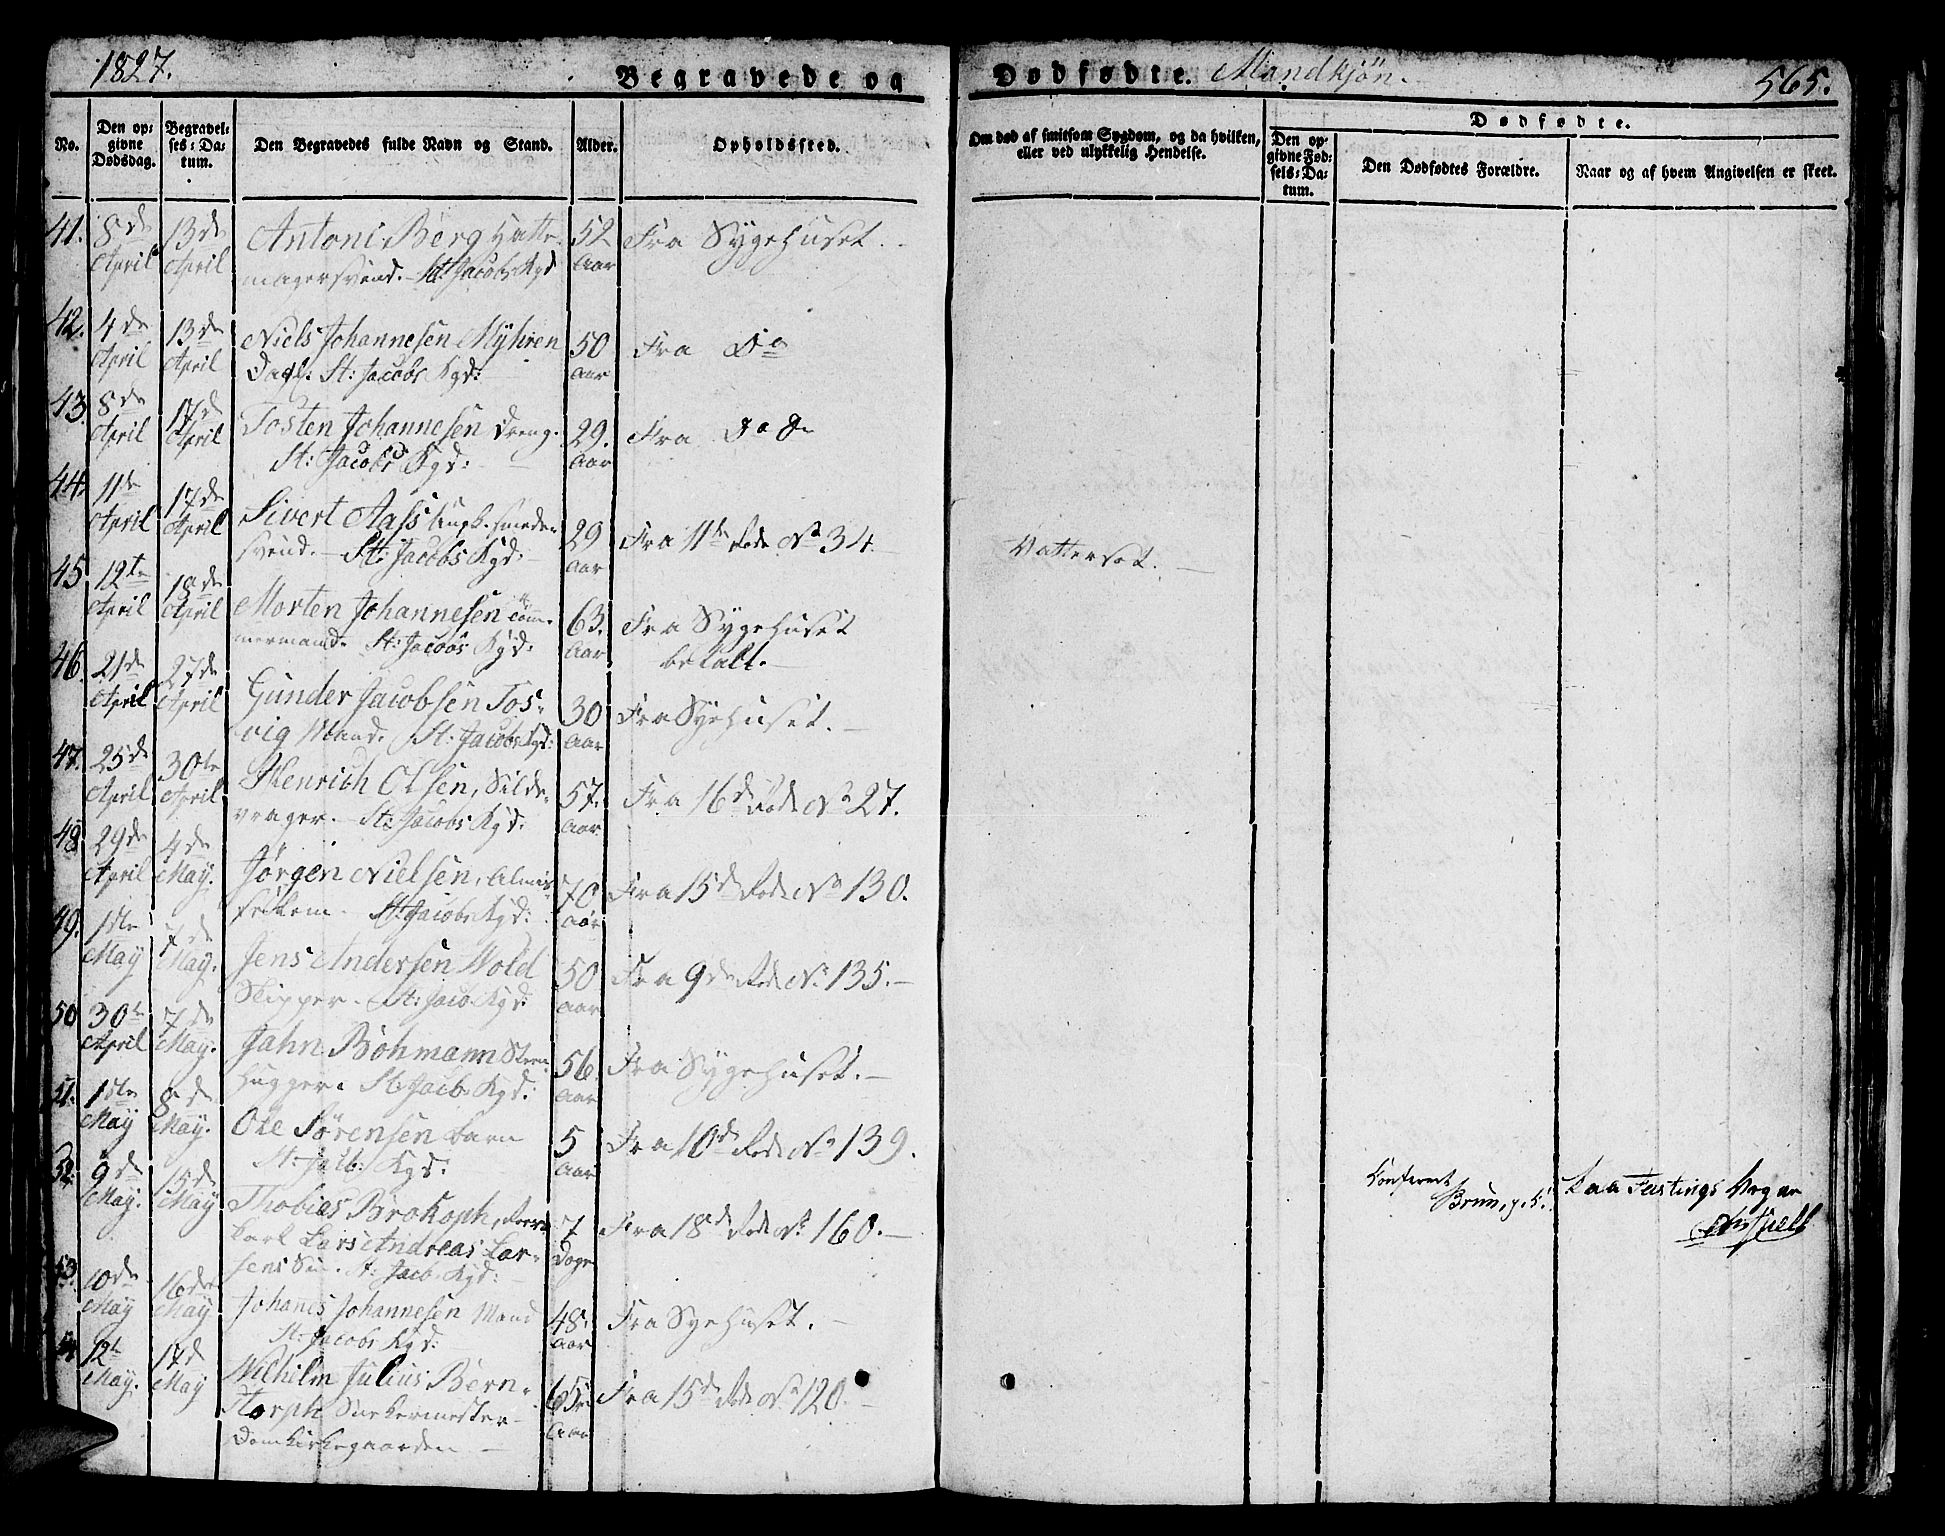 1827.
Begravede og
Dødfødte. Mandkjøn.
565.
No.
Den opgivne Dødsdag.
Begravelses-Datum.
Den Begravedes fulde Navn og Stand.
Alder.
Opholdssted.
Om død af smitsom Sygdom, og da hvilken, eller ved ulykkelig Hendelse.
Dødfødte.
Den opgivne Fødsels-Datum.
Den Dødfødtes Forældre.
Naar og af hvem Angivelsen er skeet.
41. 8de April 13de April Antoni Berg Hatte- 52 Aar Fra Sygehuset.
magersvend. St: Jacobs Kgd
42. 4de April 13de April Niels Johannesen Myhren 50 Aar Fra Do
Dagl: St: Jacobs Kgd:
43. 8de April 17de April Tosten Johannesen Dreng. 29. Aar Fra Do
St: Jacobs Kgd:
44. 11te April 17de April Sivert Aass smede- 29 Aar Fra 11te Rode No 34. Vattersot.
svend. St: Jacobs Kgd:
45 12te April 18de April Morten Johannesen Töm- 63. Aar Fra Sygehuset
mermand. St: Jacobs Kgd: betalt.
46. 21de April 27de April Gunder Jacobsen Tos- 30 Aar Fra Sygehuset.
vig Mand. St: Jacobs Kgd:
47. 25de April 30te April Henrich Olsen, Silde- 57. Aar Fra 16de Rode No 27.
vrager. St: Jacobs Kgd:
48 29de April 4de May. Jørgen Nielsen, Almis- 70 Aar Fra 15de Rode No 130.
selem. St: Jacobs Kgd:
49. 1ste May 7de May. Jens Andersen Wold 50 Aar Fra 9de Rode No 135.
Skipper. St: Jacob Kgd:
50 30te April 7de May. Jahn Böhmann Steen- 56. Aar Fra Sygehuset.
hugger. St: Jacb. Kgd:
51. 1ste May 8de May. Ole Sörensen barn 5 Aar Fra 10de Rode No 139.
St: Jacb: Kgd:
52. 9de May. 15de May Thobias Brokoph, 7 Dage Fra 18de Rode No 160. Brun, Fastings
Karl Lars Andreas Lar-
sens Sön. St: Jacb. Kgd:
53. 10de May 16de May Johanes Johannesen Mand 48. Aar Fra Sygehuset.
St: Jacobs Kgd:
54 12te May. 17de May Wilhelm Julius Bern- 65 Aar Fra 15de Rode No 120.
storph Snekermester
Domkirkegaarden